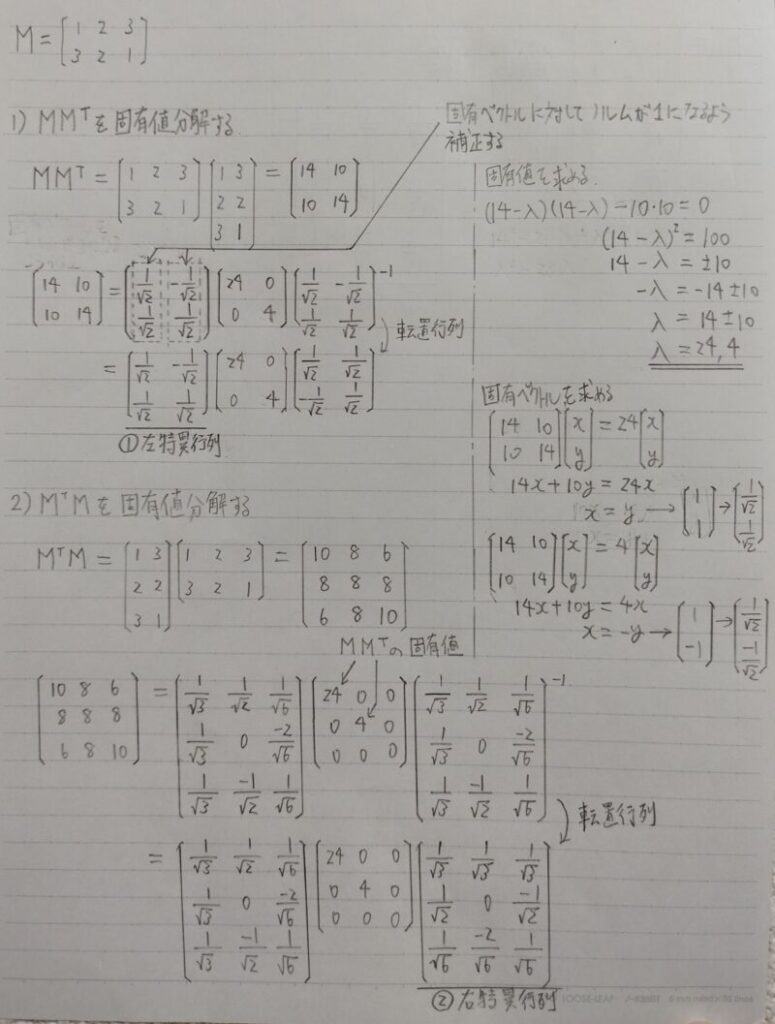 M = [1 2 3; 3 2 1]
1) MMᵀを固有値分解する
固有ベクトルに対してノルムが1になるよう
補正する
MMᵀ = [1 2 3; 3 2 1] [1 3; 2 2; 3 1] = [14 10; 10 14]
[14 10; 10 14] = [1/√2 -1/√2; 1/√2 1/√2] [24 0; 0 4] [1/√2 -1/√2; 1/√2 1/√2]⁻¹
転置行列
= [1/√2 -1/√2; 1/√2 1/√2] [24 0; 0 4] [1/√2 1/√2; -1/√2 1/√2]
①左特異行列
固有値を求める
(14-λ)(14-λ)-10・10=0
(14-λ)²=100
14-λ=±10
-λ=-14±10
λ=14±10
λ=24,4
固有ベクトルを求める
[14 10; 10 14] [x; y] = 24 [x; y]
14x+10y=24x
x=y → [1; 1] → [1/√2; 1/√2]
[14 10; 10 14] [x; y] = 4 [x; y]
14x+10y=4x
x=-y → [1; -1] → [1/√2; -1/√2]
2) MᵀMを固有値分解する
MᵀM = [1 3; 2 2; 3 1] [1 2 3; 3 2 1] = [10 8 6; 8 8 8; 6 8 10]
MMᵀの固有値
[10 8 6; 8 8 8; 6 8 10] = [1/√3 1/√2 1/√6; 1/√3 0 -2/√6; 1/√3 -1/√2 1/√6] [24 0 0; 0 4 0; 0 0 0] [1/√3 1/√2 1/√6; 1/√3 0 -2/√6; 1/√3 -1/√2 1/√6]⁻¹
転置行列
= [1/√3 1/√2 1/√6; 1/√3 0 -2/√6; 1/√3 -1/√2 1/√6] [24 0 0; 0 4 0; 0 0 0] [1/√3 1/√3 1/√3; 1/√2 0 -1/√2; 1/√6 -2/√6 1/√6]
②右特異行列
LOOSE-LEAF